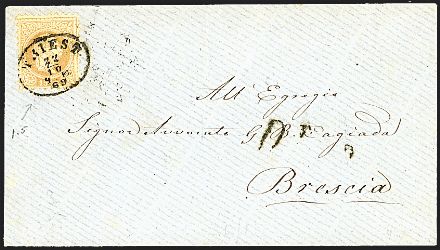 TRIEST
22
10
69
1,5
All' Egregio
Signor Avvocato G. B. Pagiada
Brescia